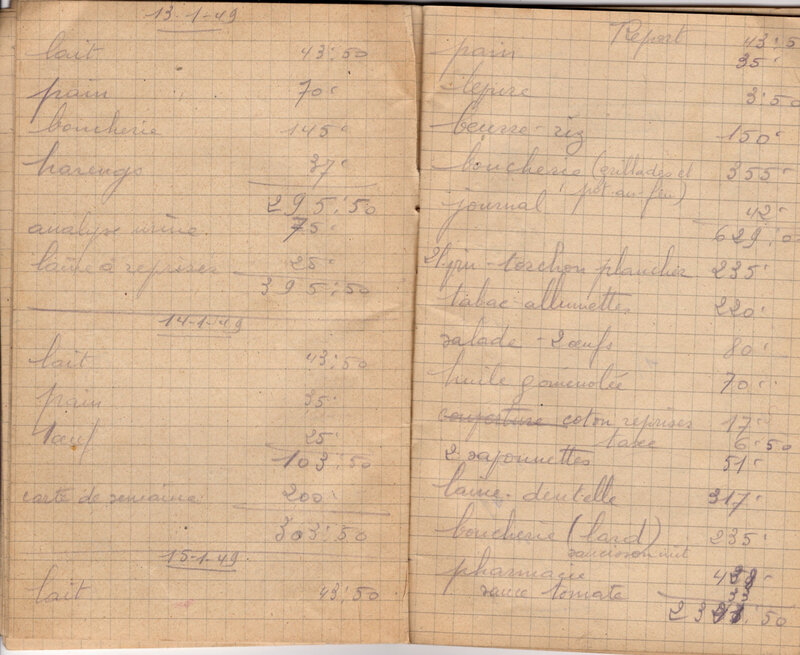 13-1-49
lait 43'50
pain 70'
boucherie 145'
harengs 37'
295'50
analyse urine. 75'
laine à repriser 25'
395'50
14-1-49
lait 43'50
pain 35'
1 œuf 25'
103'50
carte de semaine 200'
303'50
15-1-49
lait 43'50
Report 43'5
pain 35'
levure 3'50
beurre-riz 150'
boucherie (grillades et 355'
pot-au-feu)
journal 42'
629'
torchon plancher 235'
tabac-allumettes 220'
salade-2 œufs 80'
huile goménolée 70'
confiture coton reprises 17'
taxe 6'50
2 savonnettes 51'
laine-dentelle 317'
boucherie (lard) 235'
saucisson nuit
pharmacie
sauce tomate 33